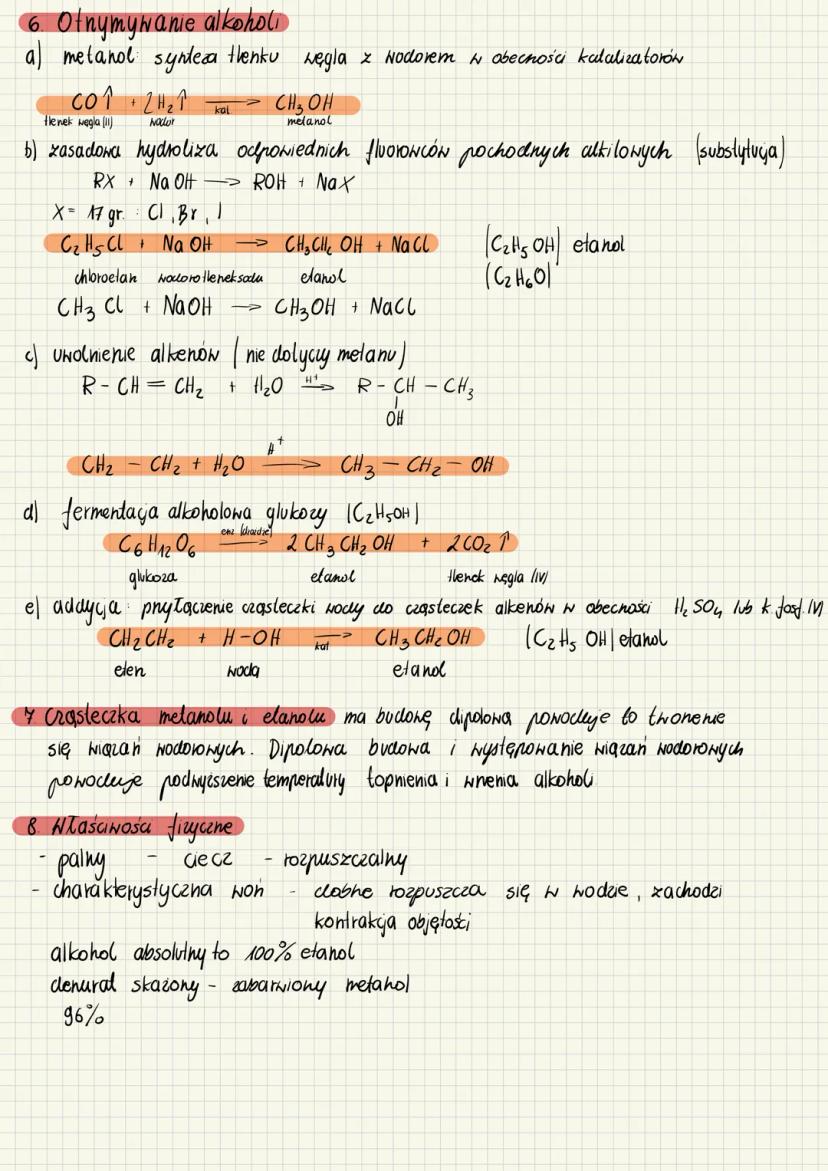 6. Otrzymywanie alkoholi
a) metanol: synteza tlenku węgla z wodorem w obecności katalizatorów
CO↑ + 2H₂↑ —kat.→ CH₃OH
tlenek węgla (II) wodór metanol
b) zasadowa hydroliza odpowiednich fluorowców pochodnych alkilowych (substytucja)
RX + NaOH → ROH + NaX
X = 17 gr. : Cl, Br, I
C₂H₅Cl + NaOH → CH₃CH₂OH + NaCl (C₂H₅OH) etanol
chloroetan wodorotlenek sodu etanol (C₂H₆O)
CH₃Cl + NaOH → CH₃OH + NaCl
c) uwolnienie alkenów (nie dotyczy metanu)
R - CH = CH₂ + H₂O —H⁺→ R - CH - CH₃
OH
CH₂ - CH₂ + H₂O —H⁺→ CH₃ - CH₂ - OH
d) fermentacja alkoholowa glukozy (C₂H₅OH)
C₆H₁₂O₆ —enz. (drożdże)→ 2 CH₃CH₂OH + 2CO₂↑
glukoza etanol tlenek węgla (IV)
e) addycja: przyłączenie cząsteczki wody do cząsteczek alkenów w obecności H₂SO₄ lub k. fosf. (V)
CH₂CH₂ + H-OH —kat→ CH₃CH₂OH (C₂H₅OH) etanol
eten woda etanol
7 Cząsteczka metanolu i etanolu ma budowę dipolową powoduje to tworzenie
się wiązań wodorowych. Dipolowa budowa i występowanie wiązań wodorowych
powoduje podwyższenie temperatury topnienia i wrzenia alkoholi
8. Właściwości fizyczne
- palny - ciecz - rozpuszczalny
- charakterystyczna woń - dobrze rozpuszcza się w wodzie, zachodzi
kontrakcja objętości
alkohol absolutny to 100% etanol
denurat skażony - zabarwiony metanol
96%